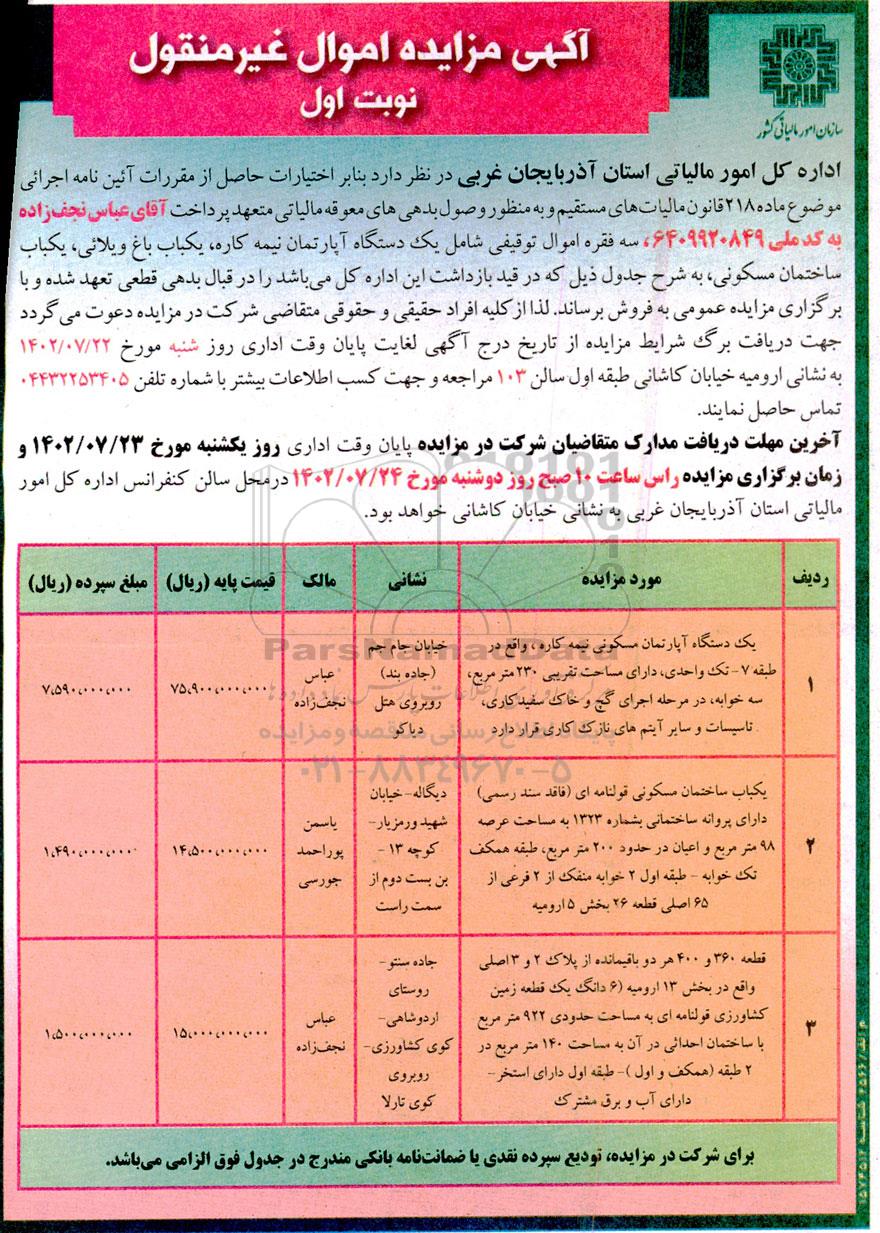 آگهی مزایده اموال غیرمنقول
نوبت اول
سازمان امور مالیاتی کشور
اداره کل امور مالیاتی استان آذربایجان غربی در نظر دارد بنابر اختیارات حاصل از مقررات آئین نامه اجرائی
موضوع ماده ۲۱۸ قانون مالیات‌های مستقیم و به منظور وصول بدهی های معوقه مالیاتی متعهد پرداخت آقای عباس نجف‌زاده
به کد ملی ۶۴۰۹۹۲۰۸۴۹، سه فقره اموال توقیفی شامل یک دستگاه آپارتمان نیمه کاره، یکباب باغ ویلائی، یکباب
ساختمان مسکونی، به شرح جدول ذیل که در قید بازداشت این اداره کل می‌باشد را در قبال بدهی قطعی تعهد شده و با
برگزاری مزایده عمومی به فروش برساند. لذا از کلیه افراد حقیقی و حقوقی متقاضی شرکت در مزایده دعوت می گردد
جهت دریافت برگ شرایط مزایده از تاریخ درج آگهی لغایت پایان وقت اداری روز شنبه مورخ ۱۴۰۲/۰۷/۲۲
به نشانی ارومیه خیابان کاشانی طبقه اول سالن ۱۰۳ مراجعه و جهت کسب اطلاعات بیشتر با شماره تلفن ۰۴۴۳۲۲۵۳۴۰۵
تماس حاصل نمایند.
آخرین مهلت دریافت مدارک متقاضیان شرکت در مزایده پایان وقت اداری روز یکشنبه مورخ ۱۴۰۲/۰۷/۲۳ و
زمان برگزاری مزایده راس ساعت ۱۰ صبح روز دوشنبه مورخ ۱۴۰۲/۰۷/۲۴ درمحل سالن کنفرانس اداره کل امور
مالیاتی استان آذربایجان غربی به نشانی خیابان کاشانی خواهد بود.
ردیف مورد مزایده نشانی مالک قیمت پایه (ریال) مبلغ سپرده (ریال)
۱
یک دستگاه آپارتمان مسکونی نیمه کاره ، واقع در
طبقه ۷ - تک واحدی، دارای مساحت تقریبی ۲۳۰ متر مربع،
سه خوابه، در مرحله اجرای گچ و خاک سفیدکاری،
تاسیسات و سایر آیتم های نازک کاری قرار دارد
خیابان جام جم
(جاده بند)
روبروی هتل
دیاکو
عباس
نجف‌زاده
۷۵,۹۰۰,۰۰۰,۰۰۰
۷,۵۹۰,۰۰۰,۰۰۰
۲
یکباب ساختمان مسکونی قولنامه ای (فاقد سند رسمی)
دارای پروانه ساختمانی بشماره ۱۳۲۳ به مساحت عرصه
۹۸ متر مربع و اعیان در حدود ۲۰۰ متر مربع، طبقه همکف
تک خوابه - طبقه اول ۲ خوابه منفک از ۲ فرعی از
۶۵ اصلی قطعه ۲۶ بخش ۵ ارومیه
دیگاله - خیابان
شهید ورمزیار-
کوچه ۱۳ -
بن بست دوم از
سمت راست
یاسمن
پوراحمد
جورسی
۱۴,۵۰۰,۰۰۰,۰۰۰
۱,۴۹۰,۰۰۰,۰۰۰
۳
قطعه ۳۶۰ و ۴۰۰ هر دو باقیمانده از پلاک ۲ و ۳ اصلی
واقع در بخش ۱۳ ارومیه (۶ دانگ یک قطعه زمین
کشاورزی قولنامه ای به مساحت حدودی ۹۲۲ متر مربع
با ساختمان احداثی در آن به مساحت ۱۴۰ متر مربع در
۲ طبقه (همکف و اول )- طبقه اول دارای استخر -
دارای آب و برق مشترک
جاده سنتو -
روستای
اردوشاهی-
کوی کشاورزی-
روبروی
کوی تارلا
عباس
نجف‌زاده
۱۵,۰۰۰,۰۰۰,۰۰۰
۱,۵۰۰,۰۰۰,۰۰۰
برای شرکت در مزایده، تودیع سپرده نقدی یا ضمانت‌نامه بانکی مندرج در جدول فوق الزامی می‌باشد.
ParsNamadData
پایگاه اطلاع رسانی مناقصه و مزایده
۰۲۱-۸۸۳۴۹۶۷۰-۵